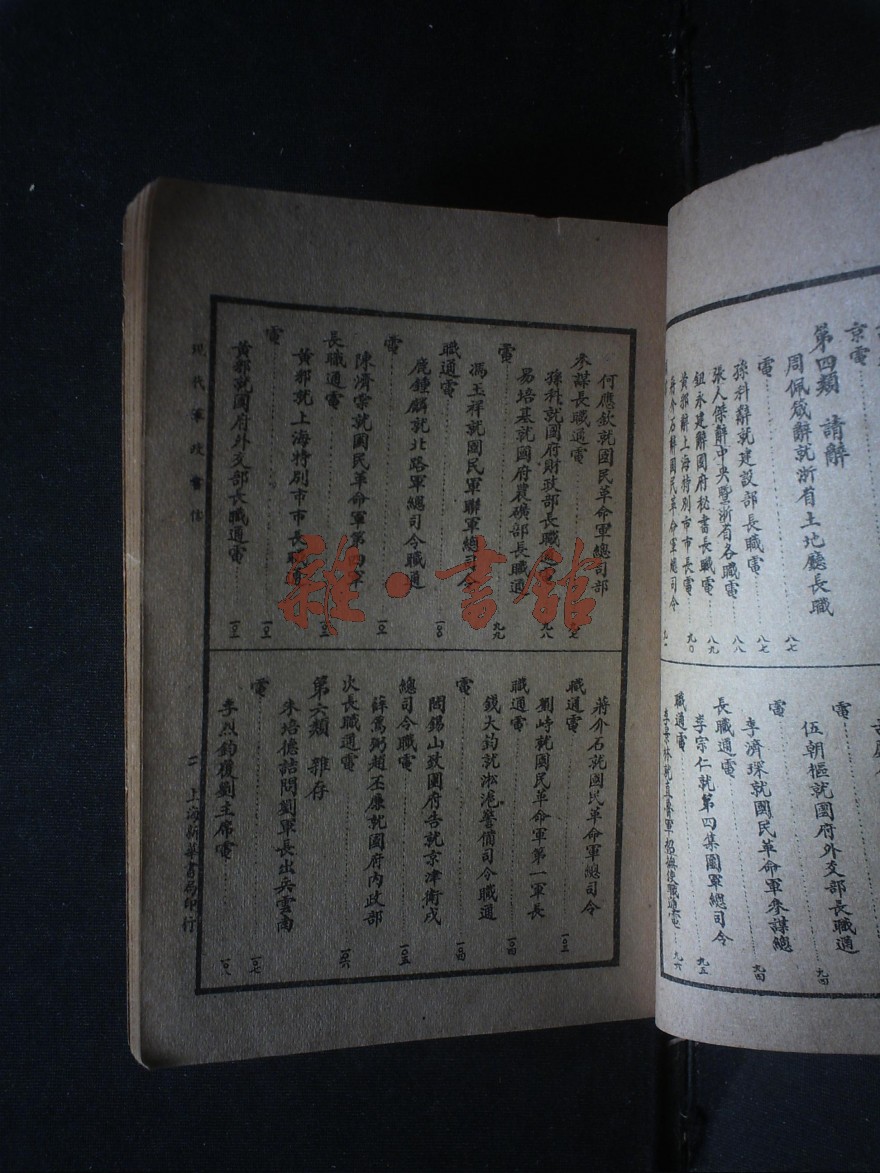 京電
第四類 請辭
周佩箴辭就浙省土地廳長職
電⋯⋯八七
孫科辭就建設部長職電⋯⋯八七
張人傑辭中央暨浙省各職電⋯⋯八八
鈕永建辭國府秘書長職電⋯⋯八九
黃郛辭上海特別市市長電⋯⋯九〇
蔣介石辭國民革命軍總司令
電
伍朝樞就國府外交部長職通
電⋯⋯九四
李濟琛就國民革命軍參謀總
長職通電⋯⋯九四
李宗仁就第四集團軍總司令
職通電⋯⋯九五
李景林就直魯軍招撫使職通電⋯⋯九六
何應欽就國民革命軍總司部
參謀長職通電
孫科就國府財政部長職通電⋯⋯九八
易培基就國府農礦部長職通
電⋯⋯九九
馮玉祥就國民軍聯軍總司令
職通電⋯⋯一〇〇
鹿鍾麟就北路軍總司令職通
電
陳濟棠就國民革命軍第四軍
長職通電
黃郛就上海特別市市長職通
電
黃郛就國府外交部長職通電
蔣介石就國民革命軍總司令
職通電⋯⋯一〇三
劉峙就國民革命軍第一軍長
職通電⋯⋯一〇四
錢大鈞就淞滬警備司令職通
電⋯⋯一〇四
閻錫山致國府告就京津衛戍
總司令職電⋯⋯一〇五
薛篤弼趙丕廉就國府內政部
次長職通電⋯⋯一〇六
第六類 雜存
朱培德詰問劉軍長出兵雲南
電⋯⋯一〇七
李烈鈞覆劉主席電⋯⋯一〇八
現代軍政書信
二 上海新華書局印行
雜·書館